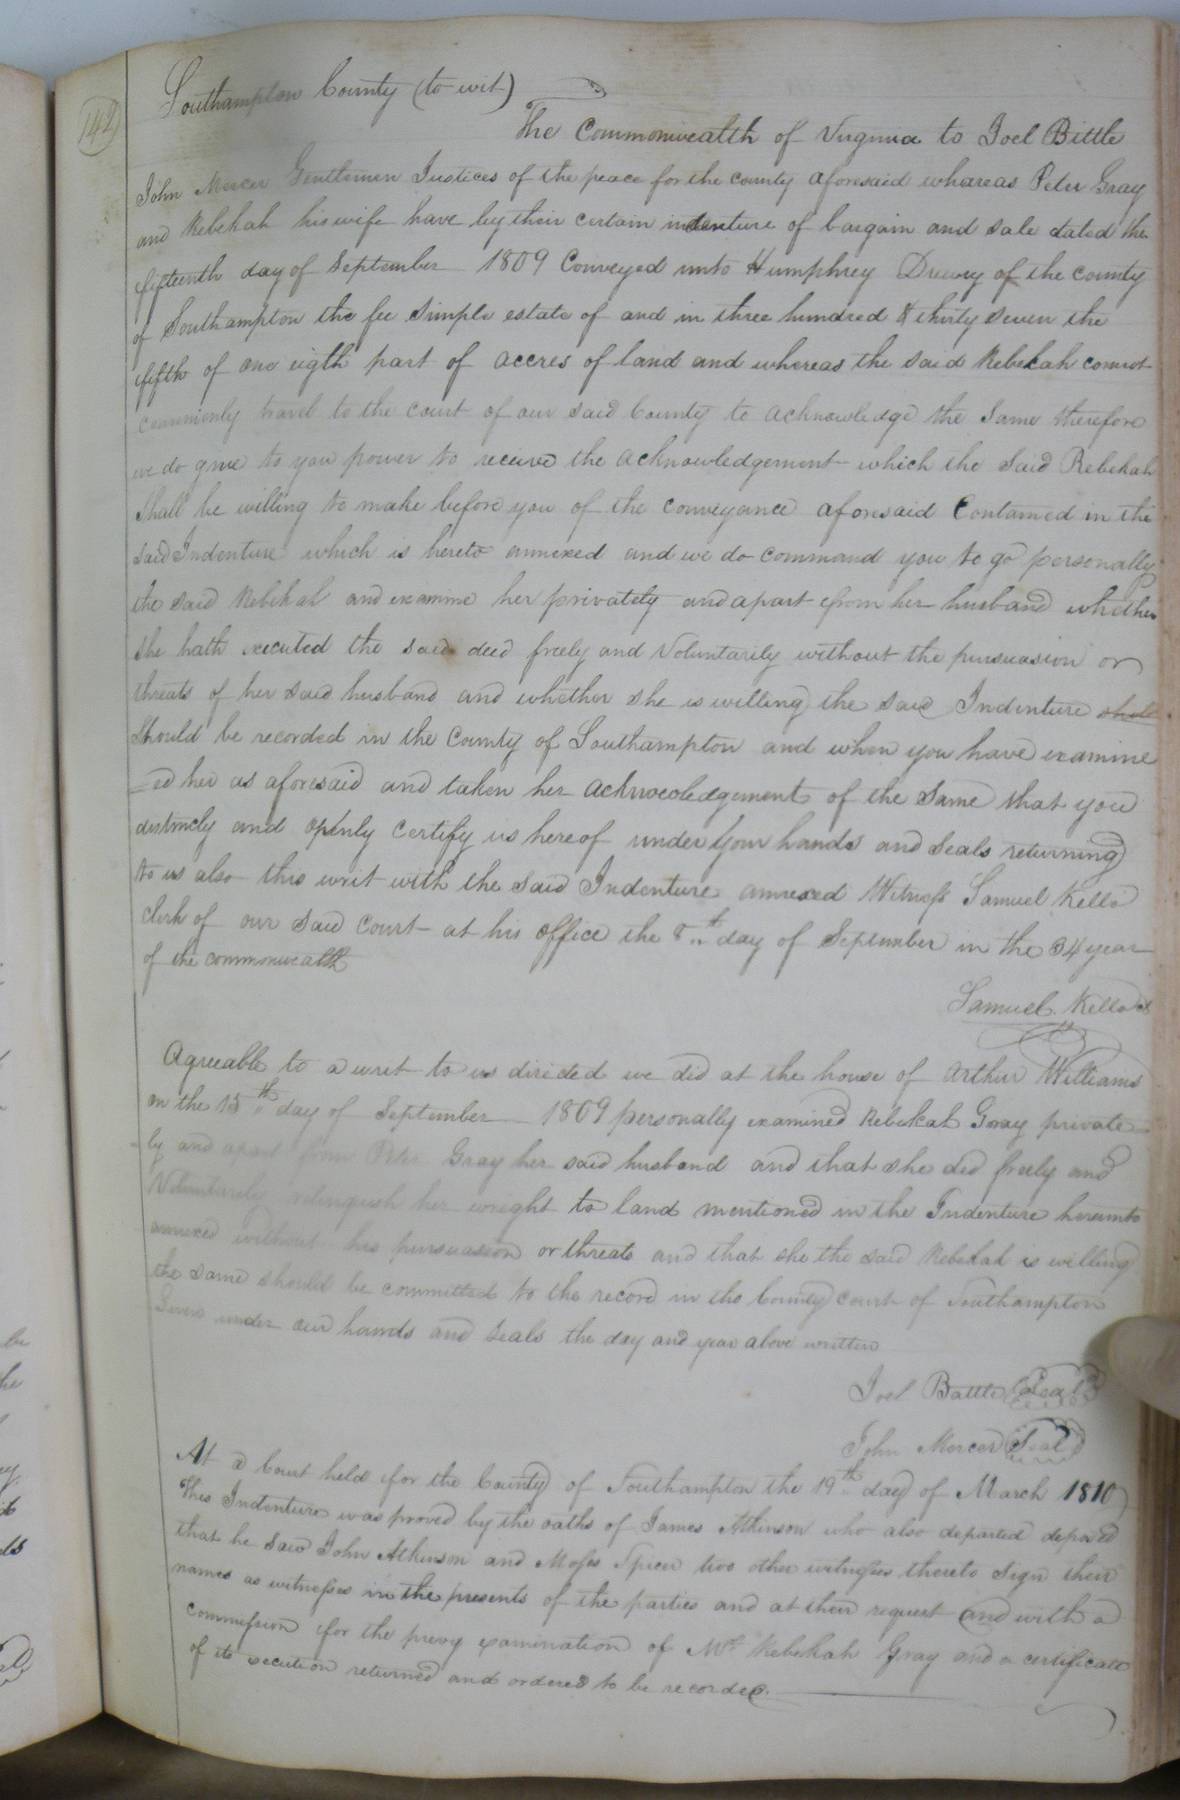 142
Southampton County (to wit)
The Commonwealth of Virginia to Joel Bittle
John Mercer Gentlemen Justices of the peace for the county aforesaid whareas Peter Gray
and Rebekah his wife have by their certain indenture of bargain and sale dated the
fifteenth day of September 1809 Conveyed unto Humphrey Drewry of the county
of Southampton the fee simple estate of and in three hundred & thirty seven the
fifth of one eigth part of accres of land and whereas the said Rebekah connot
convinionly travel to the court of our said County to acknowledge the same therefore
we do give to you power to receive the acknowledgement which the said Rebekah
shall be willing to make before you of the conveyance aforesaid Contained in the
said Indenture which is hereto annexed and we do command you to go personally
the said Rebekah and examine her privately and apart from her husband whether
she hath executed the said deed freely and Voluntarily without the pursuasion or
threats of her said husband and whether she is willing the said Indenture shall
should be recorded in the County of Southampton and when you have examine
=ed her as aforesaid and taken her acknowledgement of the same that you
distincly and openly certify us hereof under your hands and seals returning
to us also this writ with the said Indenture annexed Witness Samuel Kello
clerk of our said court at his office the 8th day of September in the 34 year
of the commonwealth
Samuel Kello
Agreeable to a writ to us dirided we did at the house of Arthur Williams
on the 15th day of September 1809 personally examined Rebekah Gray private
ly and apart from Peter Gray her said husband and that she did freely and
Voluntarily relinquish her wright to land mentioned in the Indenture hereunto
annexed without his pursuasion or threats and that she the said Rebekah is willing
the same should be committed to the record in the County court of Southampton
under our hands and seals the day and year above written
Joel Battle Seal
John Mercer Seal
At a Court held for the County of Southampton the 19th day of March 1810
This Indenture was proved by the oaths of James Atkinson who also departed deposed
that he saw John Atkinson and Moses Speer two other witnesses thereto sign their
names as witnesses in the presents of the parties and at their request and with a
commission for the prevy examination of Mrs Rebekah Gray and a certificate
of its execution returned and ordered to be recorded.